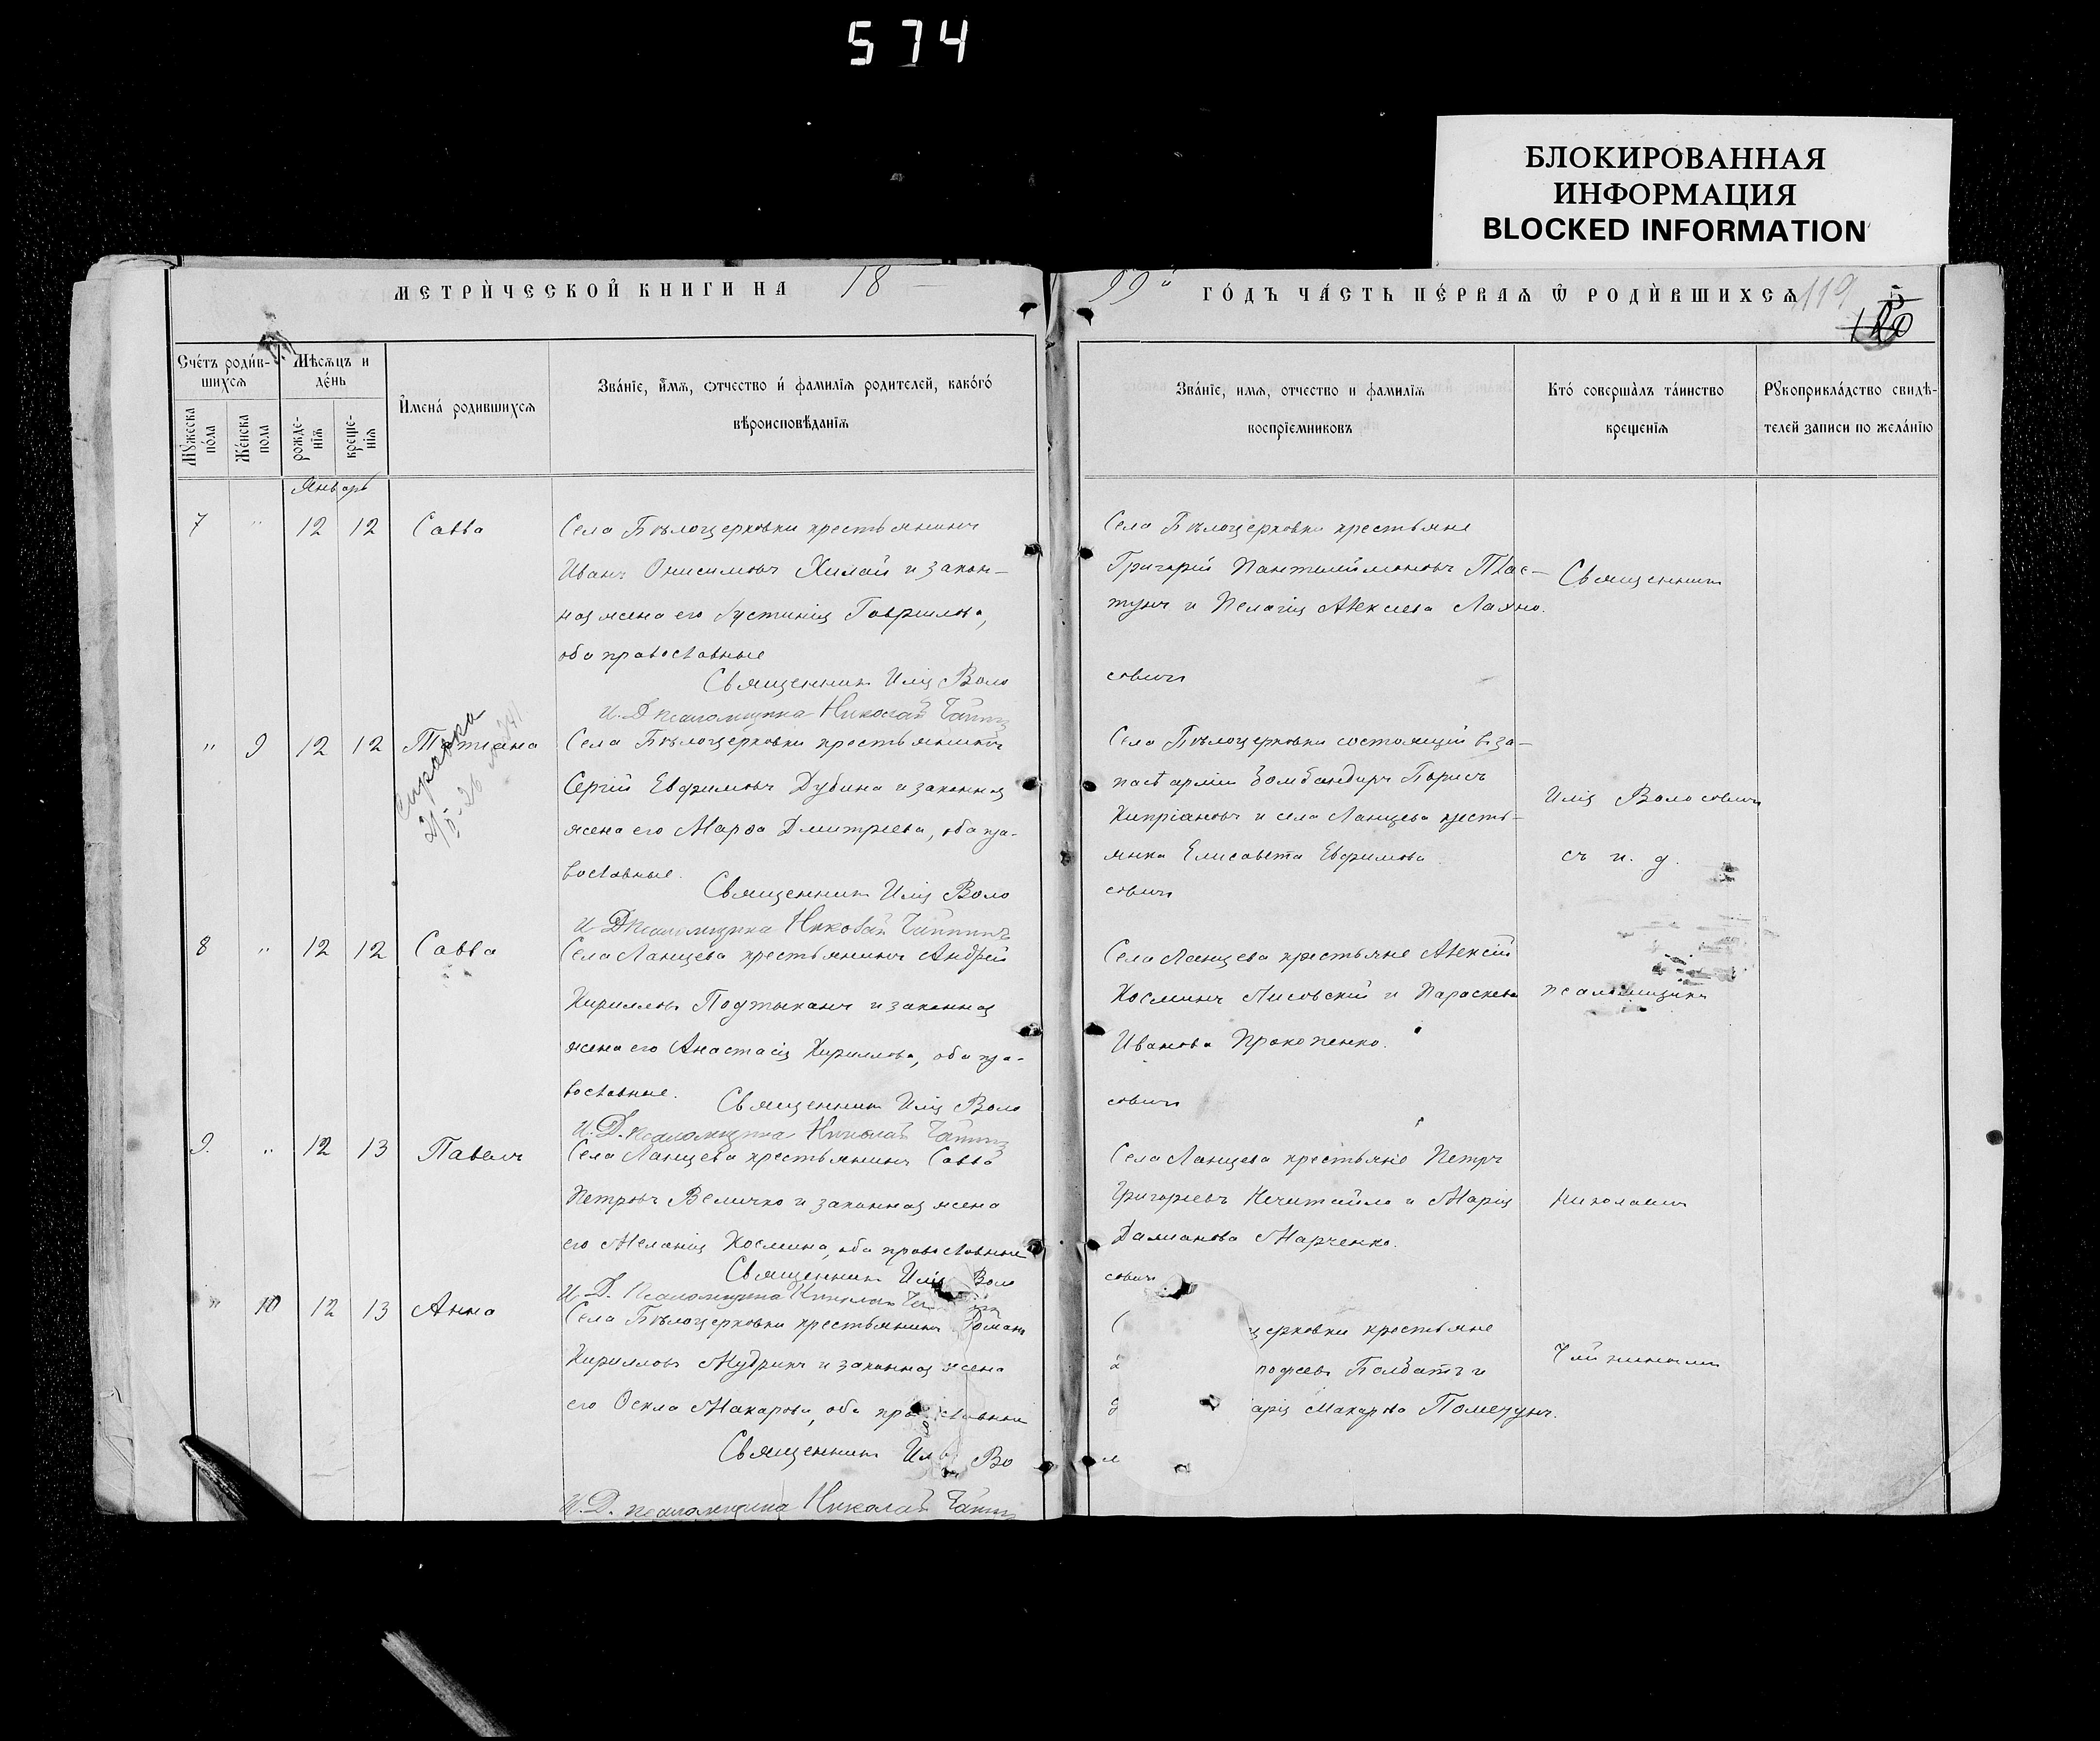 574
БЛОКИРОВАННАЯ
ИНФОРМАЦИЯ
BLOCKED INFORMATION
МЕТРИ́ЧЕСКОЙ КНИГИ НА 18
99й ГО́ДЪ ЧА́СТЬ ПЕ́РВАѦ Ѿ РОДИ́ВШИХСѦ 119
Сче́тъ роди́в-
шихсѧ
Мꙋжеска по́ла
Же́нска пола
Мѣ́сѧцъ и
де́нь
рожде-
нїѧ
креще-
нїѧ
И҆мена́ родившихсѧ
Зва́нїе, и҆́мѧ, ѻтчество и҆ фамилїѧ родителей, како́гѡ
вѣроисповѣданїѧ
Зва́нїе, имѧ, отчество и фамилїѧ
воспрїемниковъ
Кто̀ соверша́лъ та́инство
крещенїѧ
Рꙋкоприкла́дство свидѣ-
телей записи по жела́нїю
Январь
7 " 12 12 Савва
Села Бѣлоцерковки крестьянинъ
Иванъ Онисимовъ Хилай и закон-
ная жена его Іустинія Гавриилова,
оба православные
Священникъ Илія Воло
И. Д. псаломщика Николай
Села Бѣлоцерковки крестьяне
Григорій Пантелиімоновъ Плас-
тунъ и Пелагія Алексіева Лахно.
совичъ
Священникъ
" 9 12 12 Татіана
Справка
Села Бѣлоцерковки крестьянинъ
Сергій Евфимовъ Дубина и законная
жена его Марѳа Димитріева, оба пра-
вославные.
Священникъ Илія Воло
И. Д. псаломщика Николай
Села Бѣлоцерковки состоящій въ за-
пасѣ арміи Борисъ
Кипріановъ и села Ланцева кресть-
янка Елисавета Евфимова
совичъ
Илія Волосовичъ
съ и. д.
8 " 12 12 Савва
Села Ланцева крестьянинъ Андрей
Кирилловъ Подтыканъ и законная
жена его Анастасія Кириллова, оба пра-
вославные.
Священникъ Илія Воло
И. Д. псаломщика Николай
Села Ланцева крестьяне Алексій
Косминъ Лисовскій и Параскева
Иванова Прокопенко.
совичъ
псаломщика
9. " 12 13 Павелъ
Села Ланцева крестьянинъ Савва
Петровъ Величко и законная жена
его Меланія Космина, оба православные
Священникъ Илія Воло
И. Д. Псаломщика Николай
Села Ланцева крестьяне Петръ
Григоріевъ Нечитайло и Марія
Даміанова Марченко.
совичъ
Николаемъ
" 10 12 13 Анна
Села Бѣлоцерковки крестьянинъ Романъ
Кирилловъ Мудрикъ и законная жена
его Ѳекла Макарова, оба православные
Священникъ Илія Во
И. Д. псаломщика Николай
церковки крестьяне
арія Макарова Померунъ.